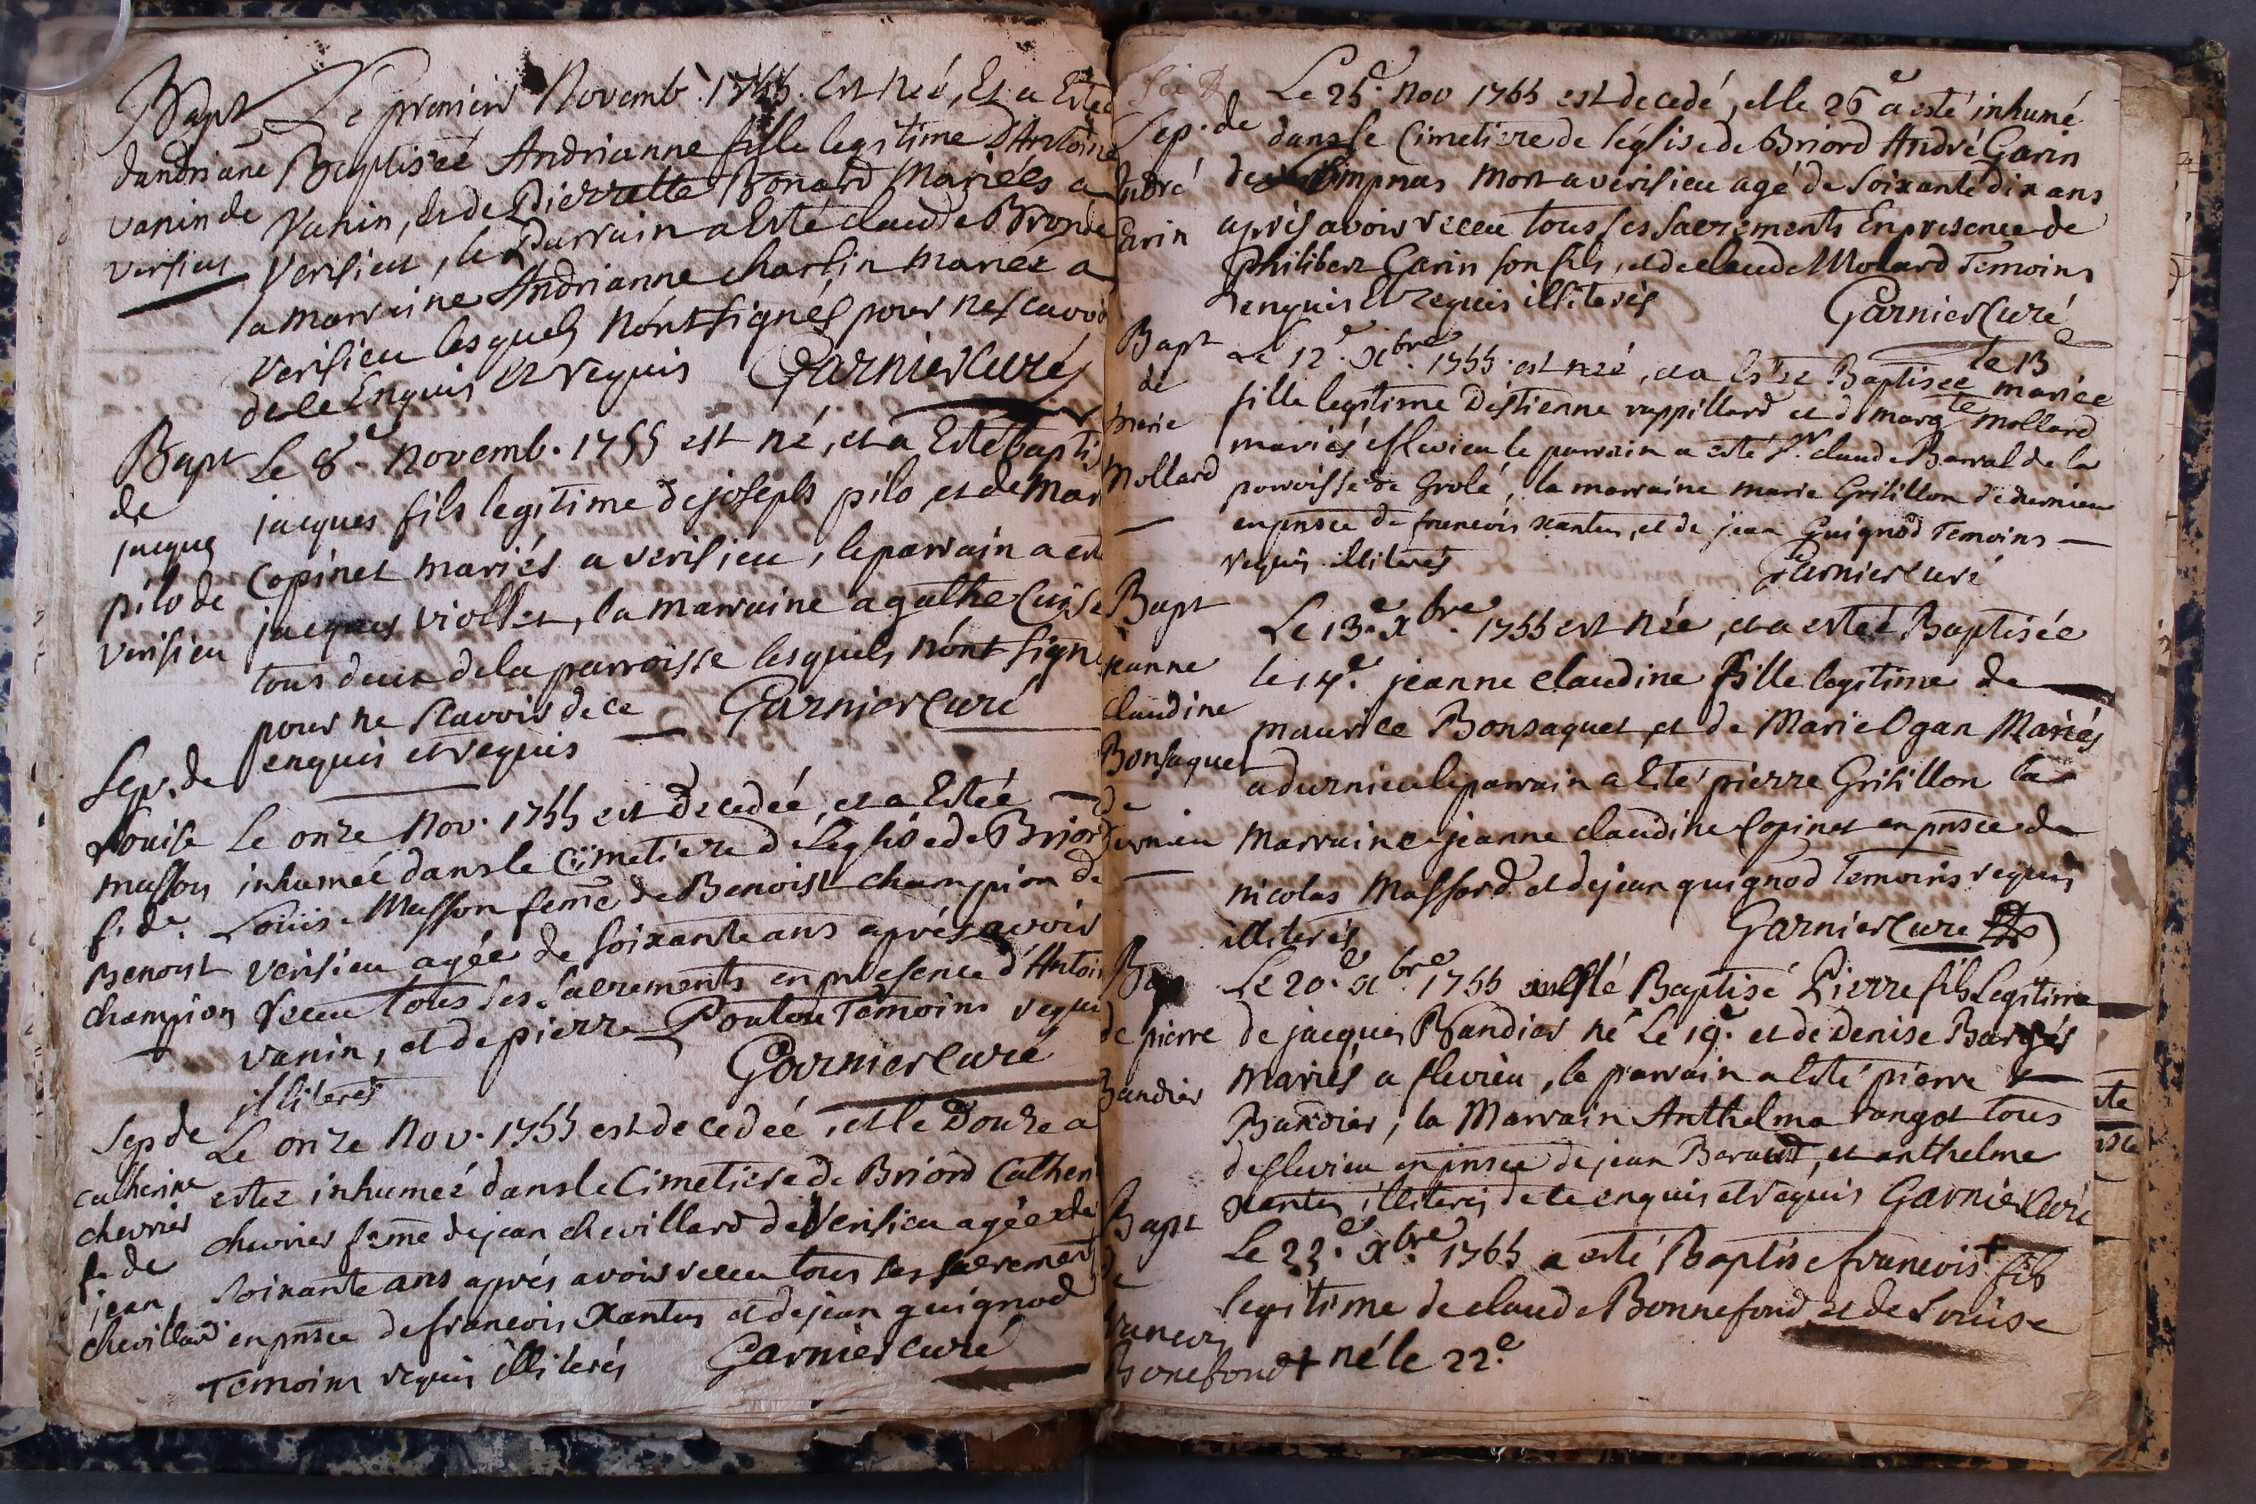 Bapt
dandrianne
vanin de
verisieu
Le premier Novemb. 1755. Est Né, Et a Estée
Baptiseé Andrianne fille legitime d'Antoine
Vanin, et de Pierrette Bonard Mariés a
Verisieu, le Parrain a Esté claude Bronde
la marraine Andrianne charlin mariée a
verisieu lesquels n'ont signés pour ne scavoir
de ce Enquis et requis Garnier curé
Bapt
de
jacque
pilo de
verisieu
Le 8e. novemb. 1755 est né, et a Esté bapti
jacques fils legitime de joseph pilo, et de Mar
Copinet mariés a verisieu, le parrain a esté
jacques viollet, la marraine agathe Cuise
tous deux de la parroisse lesquels n'ont signé
pour ne scavoir de ce Garnier curé
enquis et requis
Sep. de
Louise
masson
f. de
Benoist
champion
Le onze Nov. 1755 est decedeé, et a Estée
inhumeé dans le Cimetiere de L'eglise de Briord
Louise Masson feme de Benoist champion de
verisieu ageé de soixante ans aprés avoir
receu tous ses sacrements en presence d'Antoi
vanin, et de pierre Poulou Temoins requi
illiterés Garnier curé
Sep de
catherine
chevrier
f. de
jean
chevillard
Le onze Nov. 1755 est decedeé, et le Douze a
esteé inhumeé dans le Cimetiere de Briord Cather
chevrier feme de jean chevillard de Verisieu ageé de
soixante ans aprés avoir receu tous ses sacrements
en pnsce de francois Xantus et de jean guignod
Temoins requis illiterés Garnier curé
Sep. de
André
Garin
Le 25e. Nov 1755 est decedé, et le 26e a esté inhumé
dans le Cimetiere de l'eglise de Briord André Garin
de Mort a verisieu agé de soixante dix ans
aprés avoir receu tous ses sacrements En presence de
Philibert Garin son fils, et de claude Molard Temoins
enquis et requis illiterés Garnier Curé
Bapt
de
marie
Mollard
Le 12e. xbre. 1755 est neé, et a Esteé Baptiseé le 13e mariée
fille legitime D'estienne rappillard et de margte mollard
mariés a flevieu le parrain a esté Sr. claude Barral de la
parroisse de Grolé, la marraine marie Grilillon de durnieu
en pnsce de francois xantus, et de jean Guignod Temoins
requis illiterés Garnier curé
Bapt
jeanne
claudine
Bonsaquet
de
durnieu
Le 13e. xbre. 1755 est Née, et a esteé Baptisée
le 14e. jeanne claudine fille legitime de
maurice Bonsaquet, et de Marie Ogan Mariés
a durnieu le parrain a Esté pierre Grilillon la
Marraine jeanne claudine Copinet en pnsce de
nicolas Massard et de jean guignod Temoins requis
illiterés Garnier Curé
Bap
de pierre
Bandier
Le 20e. xbre. 1755 a esté Baptisé Pierre fils Legitime
de jacques Bandier né Le 19e. et de Denise Barges
Mariés a flevieu, le parrain a Esté pierre
Bandier, la Marrain Anthelma rangot tous
de flevieu en pnsce de jean Baraud, et anthelme
Xantus illiterés de ce enquis et requis Garnier Curé
Bapt
de
francois
Bonefond
Le 23e. xbre. 1755 a esté Baptise francois + fils
legitime de claude Bonnefond et de Louise
+ né le 22e.